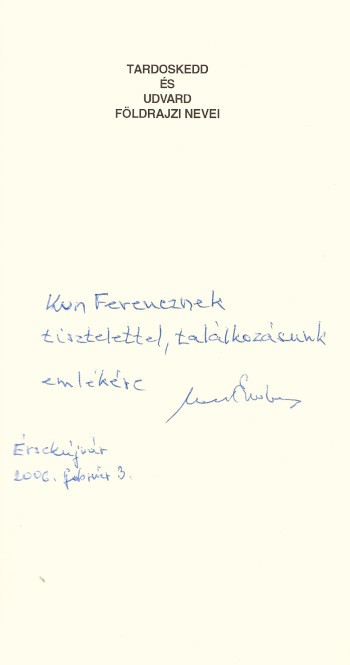 TARDOSKEDD
ÉS
UDVARD
FÖLDRAJZI NEVEI
Kun Ferencznek
tisztelettel, találkozásunk
emlékére
Érsekújvár
2006. február 3.